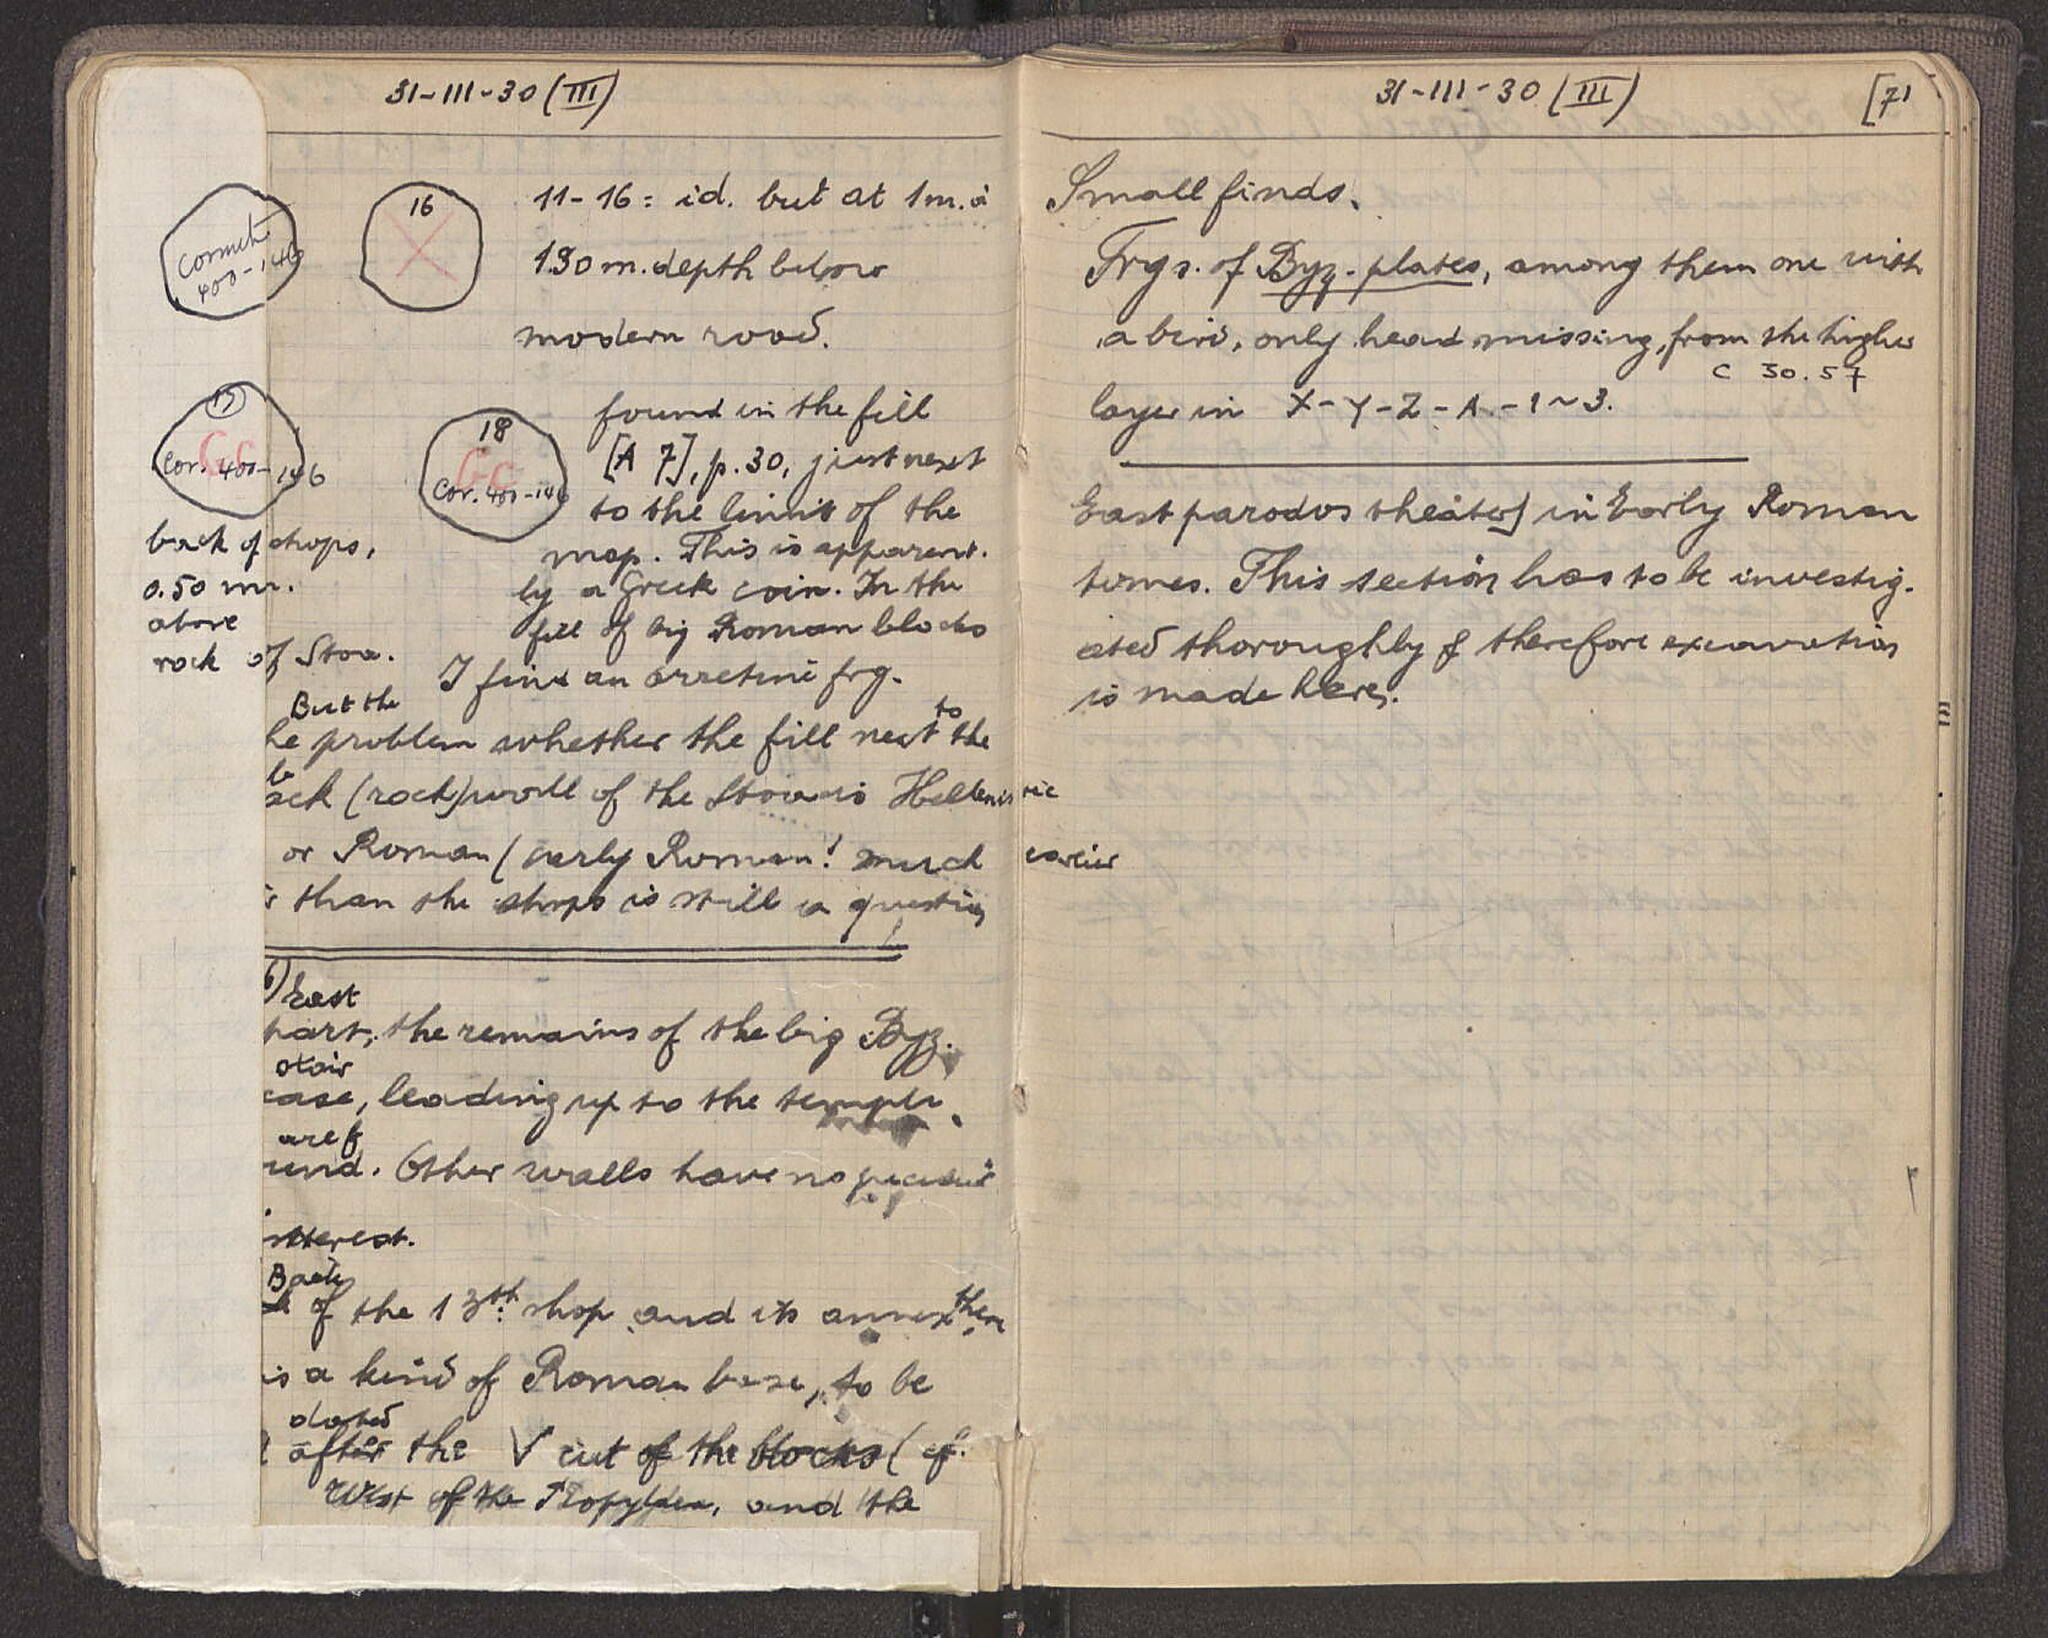 31-III-30 (III)
Corinth
400-146
16
11-16 = id. but at 1 m. à
1.90 m. depth below
modern road.
17
Cor. 400-146
back of shops,
0.50 m.
above
rock of Stoa.
18
Cor. 400-146
found in the fill
[A 7], p. 30, just next
to the limit of the
map. This is apparent-
ly a Greek coin. In the
fill of big Roman blocks
I find an arretine frg.
But the
he problem whether the fill next to the
back (rock) wall of the Stoa is Hellenistic
or Roman (early Roman! much earlier
than the shops is still a question
6) East
part, the remains of the big Byz.
stair
case, leading up to the temple,
are f
ound. Other walls have no peculiar
interest.
Back
of the 13th shop and its annex there
is a kind of Roman base, to be
dated
after the V cut of the blocks (cf.
West of the Propylaea, and the
31-III-30 (III)
[71
Small finds.
Frgs. of Byz. plates, among them one with
a bird, only head missing, from the higher
C 30.57
layer in X-Y-Z-A-1~3.
East parodos theater] in Early Roman
times. This section has to be investig-
ated thoroughly & therefore excavation
is made here.